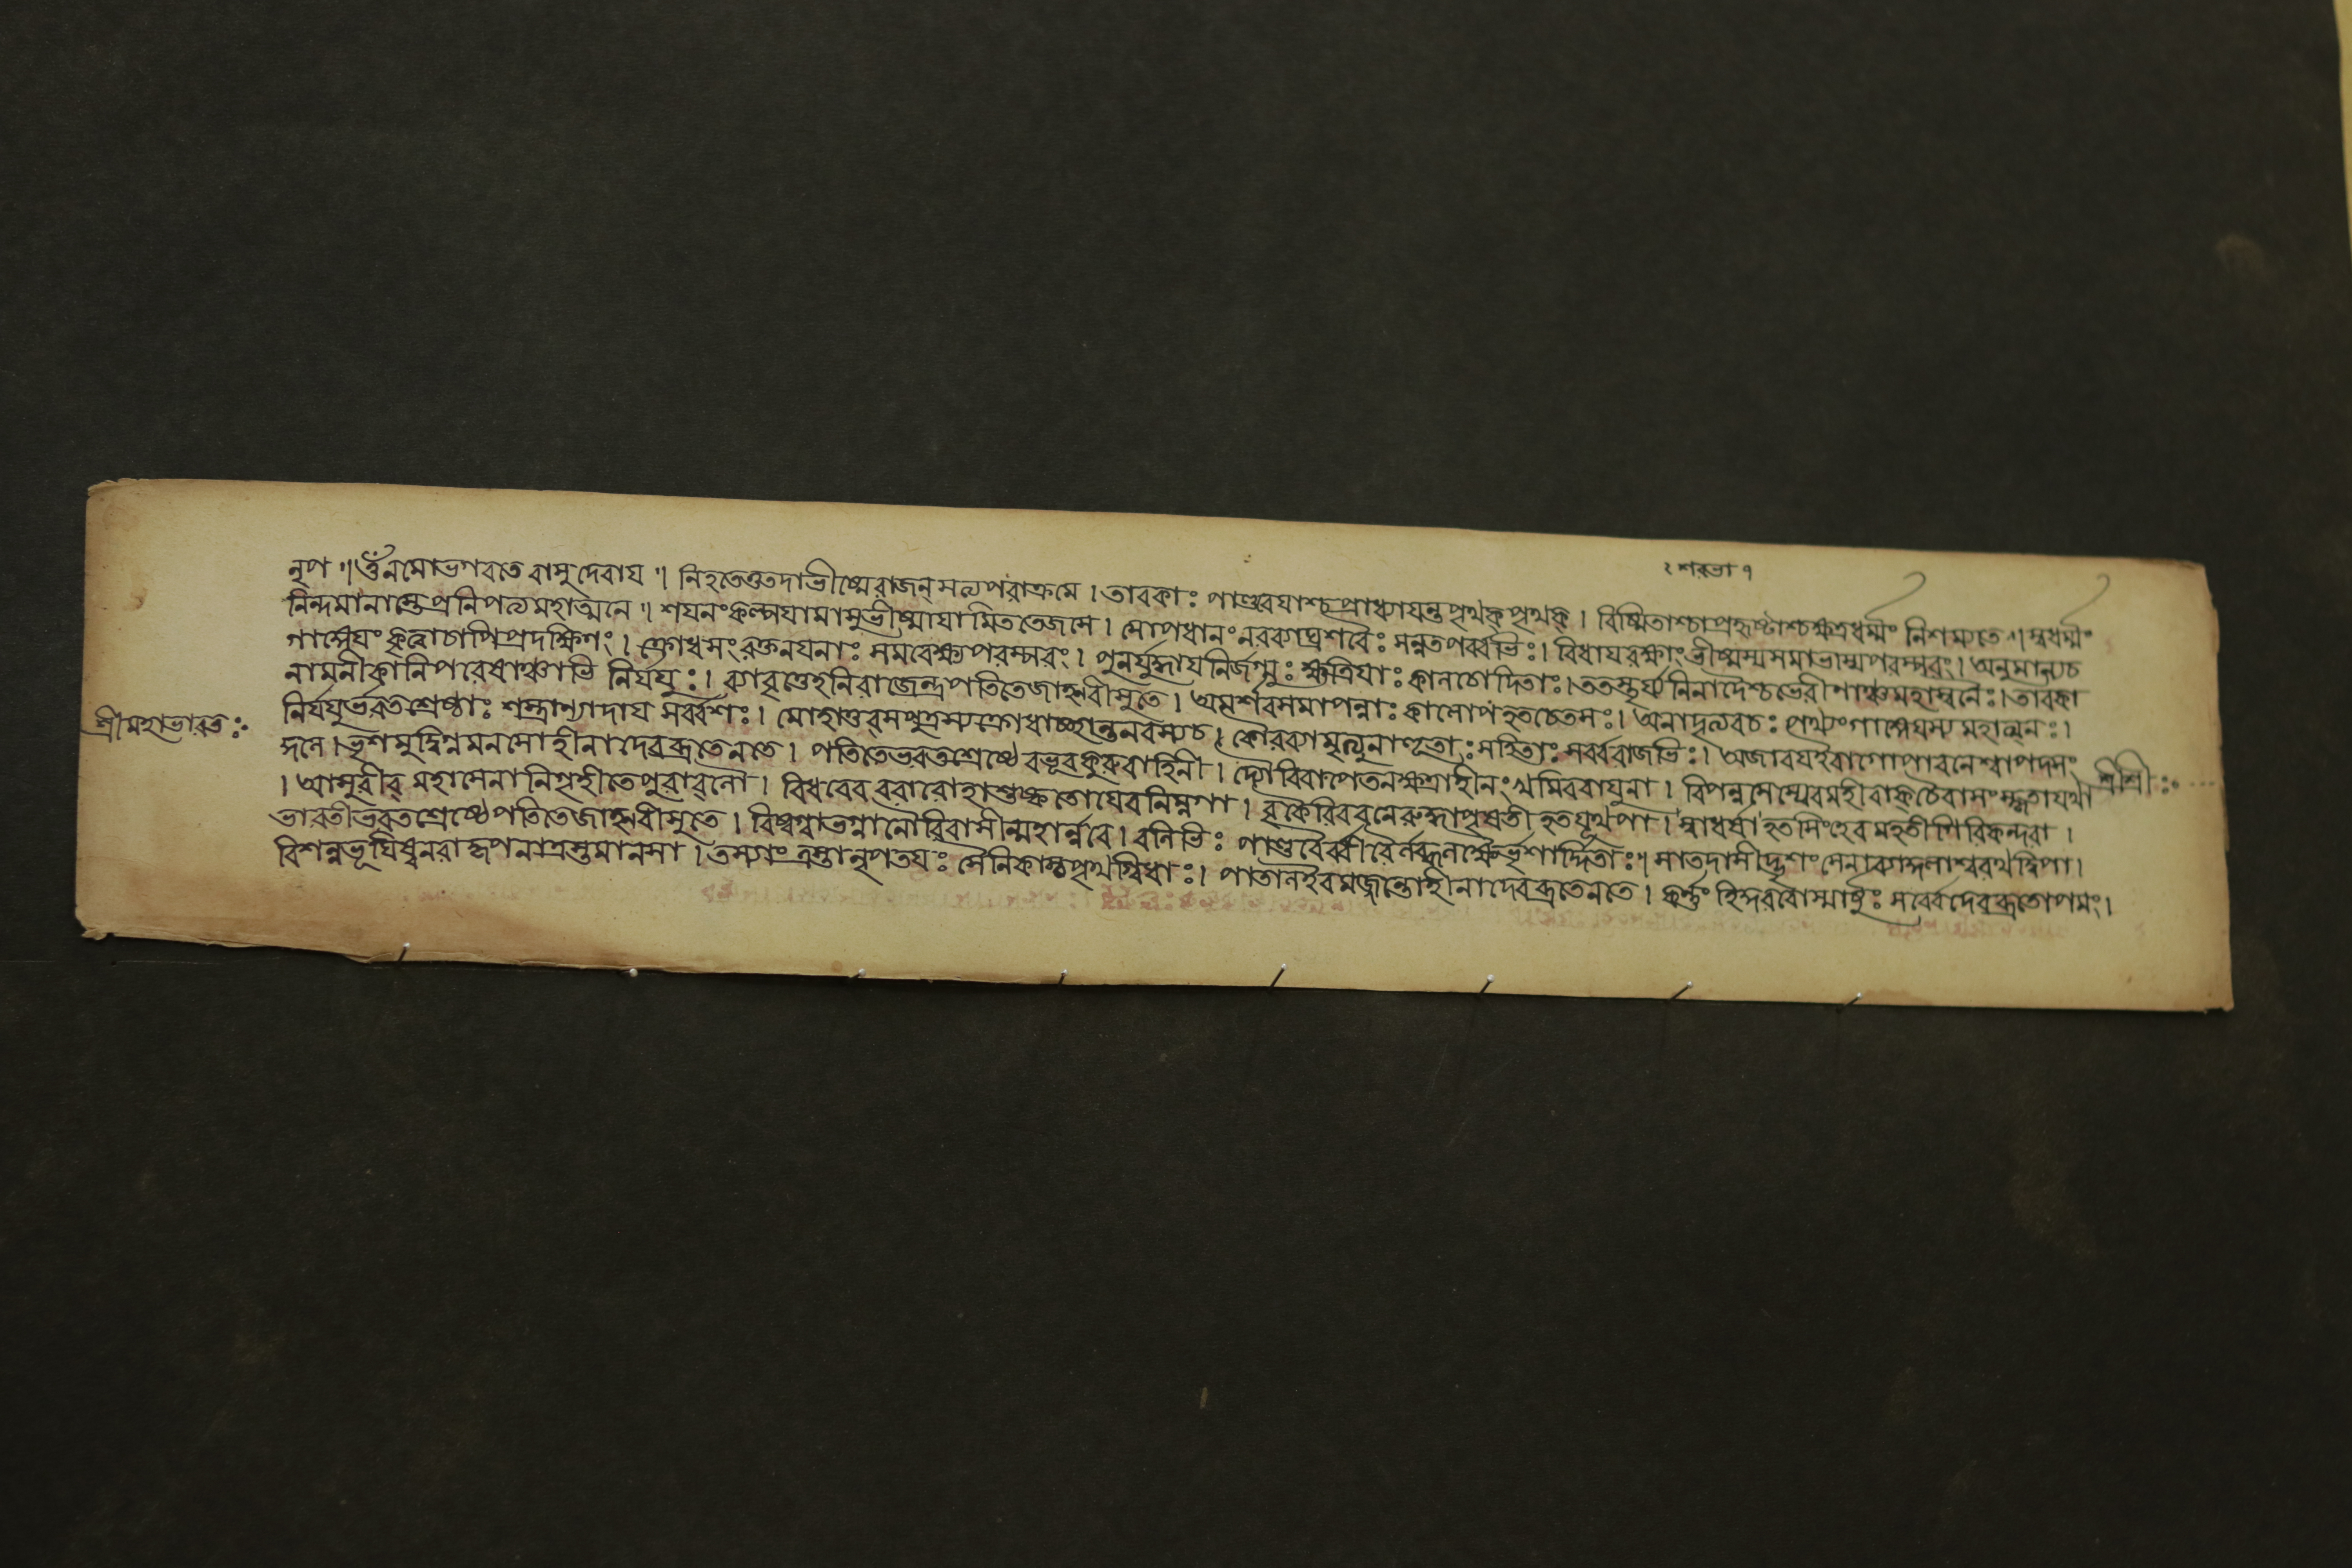 নৃপ ॥ ওঁনমোভগবতে বাসুদেবায ॥ নিহতেতুতদাভীষ্মেরাজন্ সত্যপরাক্রমে । তাবকাঃ পাণ্ডবেযাশ্চপ্রাধ্যাযন্তপৃথক্ পৃথক্ । বিষ্মিতাশ্চাপ্রহৃষ্টাশ্চক্ষত্রধর্ম্মং নিশম্যতে ॥ স্বধর্ম্মং
নিন্দমানাস্তেপ্রনিপত্যমহাত্মনে ॥ শযনংকল্পযামাসুর্ভীষ্মাযামিততেজসে । সোপধানংনরব্যাঘ্রশরৈঃ সন্নতপর্ব্বভিঃ । বিধাযরক্ষাংভীষ্মস্যসমাভাষ্যপরস্পরং । অনুমান্যচ
গাঙ্গেযং কৃত্বাচাপিপ্রদক্ষিণং । ক্রোধসংরক্তনযনাঃ সমবেক্ষ্যপরস্পরং । পুনর্যুদ্ধাযনির্জগ্মুঃ ক্ষত্রিযাঃ কালচোদিতাঃ । ততস্তূর্য্যনিনাদৈশ্চভেরীণাঞ্চমহাস্বনৈঃ । তাবকা
নামনীকানিপরেষাঞ্চাভি নির্যযুঃ । ব্যাবৃত্তেহনিরাজেন্দ্রপতিতেজাহ্নবীসুতে । অমর্শবসমাপন্নাঃ কালোপহতচেতসঃ । অনাদৃত্যবচঃ পথ্যংগাঙ্গেযস্য মহাত্মনঃ ।
নির্যযুর্ভরতশ্রেষ্ঠাঃ শস্ত্রান্যাদায সর্ব্বশঃ । মোহাত্তবসপুত্রস্যক্রোধাচ্ছান্তনবস্যচ । কৌরব্যামৃত্যুনাহূতাঃ সহিতাঃ সর্ব্বরাজভিঃ । অজাবযইবাগোপাবনেশ্বাপদসং
শ্রীমহাভারতঃ
ঙ্গলে । ভৃশমুদ্বিগ্নমনসোহীনাদেবব্রতেনতে । পতিতেভরতশ্রেষ্ঠে বভূবকুরুবাহিনী । দ্যৌরিবাপেতনক্ষত্রাহীনং খমিববাযুনা । বিপন্নসস্যেবমহীবাক্ চৈবাসংস্কৃতাযথা
শ্রীশ্রীঃ
। আসুরীব মহাসেনানিগৃহীতেপুরাবলৌ । বিধবেব বরারোহাশুষ্কতোযেবনিম্নগা । বৃকৈরিববনেরুদ্ধাপৃষতী হতযূথপা । স্বাধর্ষা হতসিংহেবমহতীগিরিকন্দরা ।
ভারতীভরতশ্রেষ্ঠেপতিতেজাহ্নবীসুতে । বিষ্বগ্বাতভগ্নানৌরিবাসীন্মহার্ন্নবে । বলিভিঃ পাণ্ডবৈর্ব্বীরৈর্লব্ধলক্ষৈর্ভৃশার্দ্দিতাঃ । সাতদাসীদ্ভৃশংসেনাব্যাকুলাশ্বরথদ্বিপা ।
বিশন্নভূযিষ্ঠনরাকৃপনাত্রস্তমানসা । তস্যাং ত্রস্তানৃপতযঃ সৈনিকাশ্চপৃথগ্বিধাঃ । পাতালইবমজ্জন্তোহীনাদেবব্রতেনতে । কর্ণং হিকুরবোস্মার্ষুঃ সর্ব্বেদেবব্রতোপমং ।